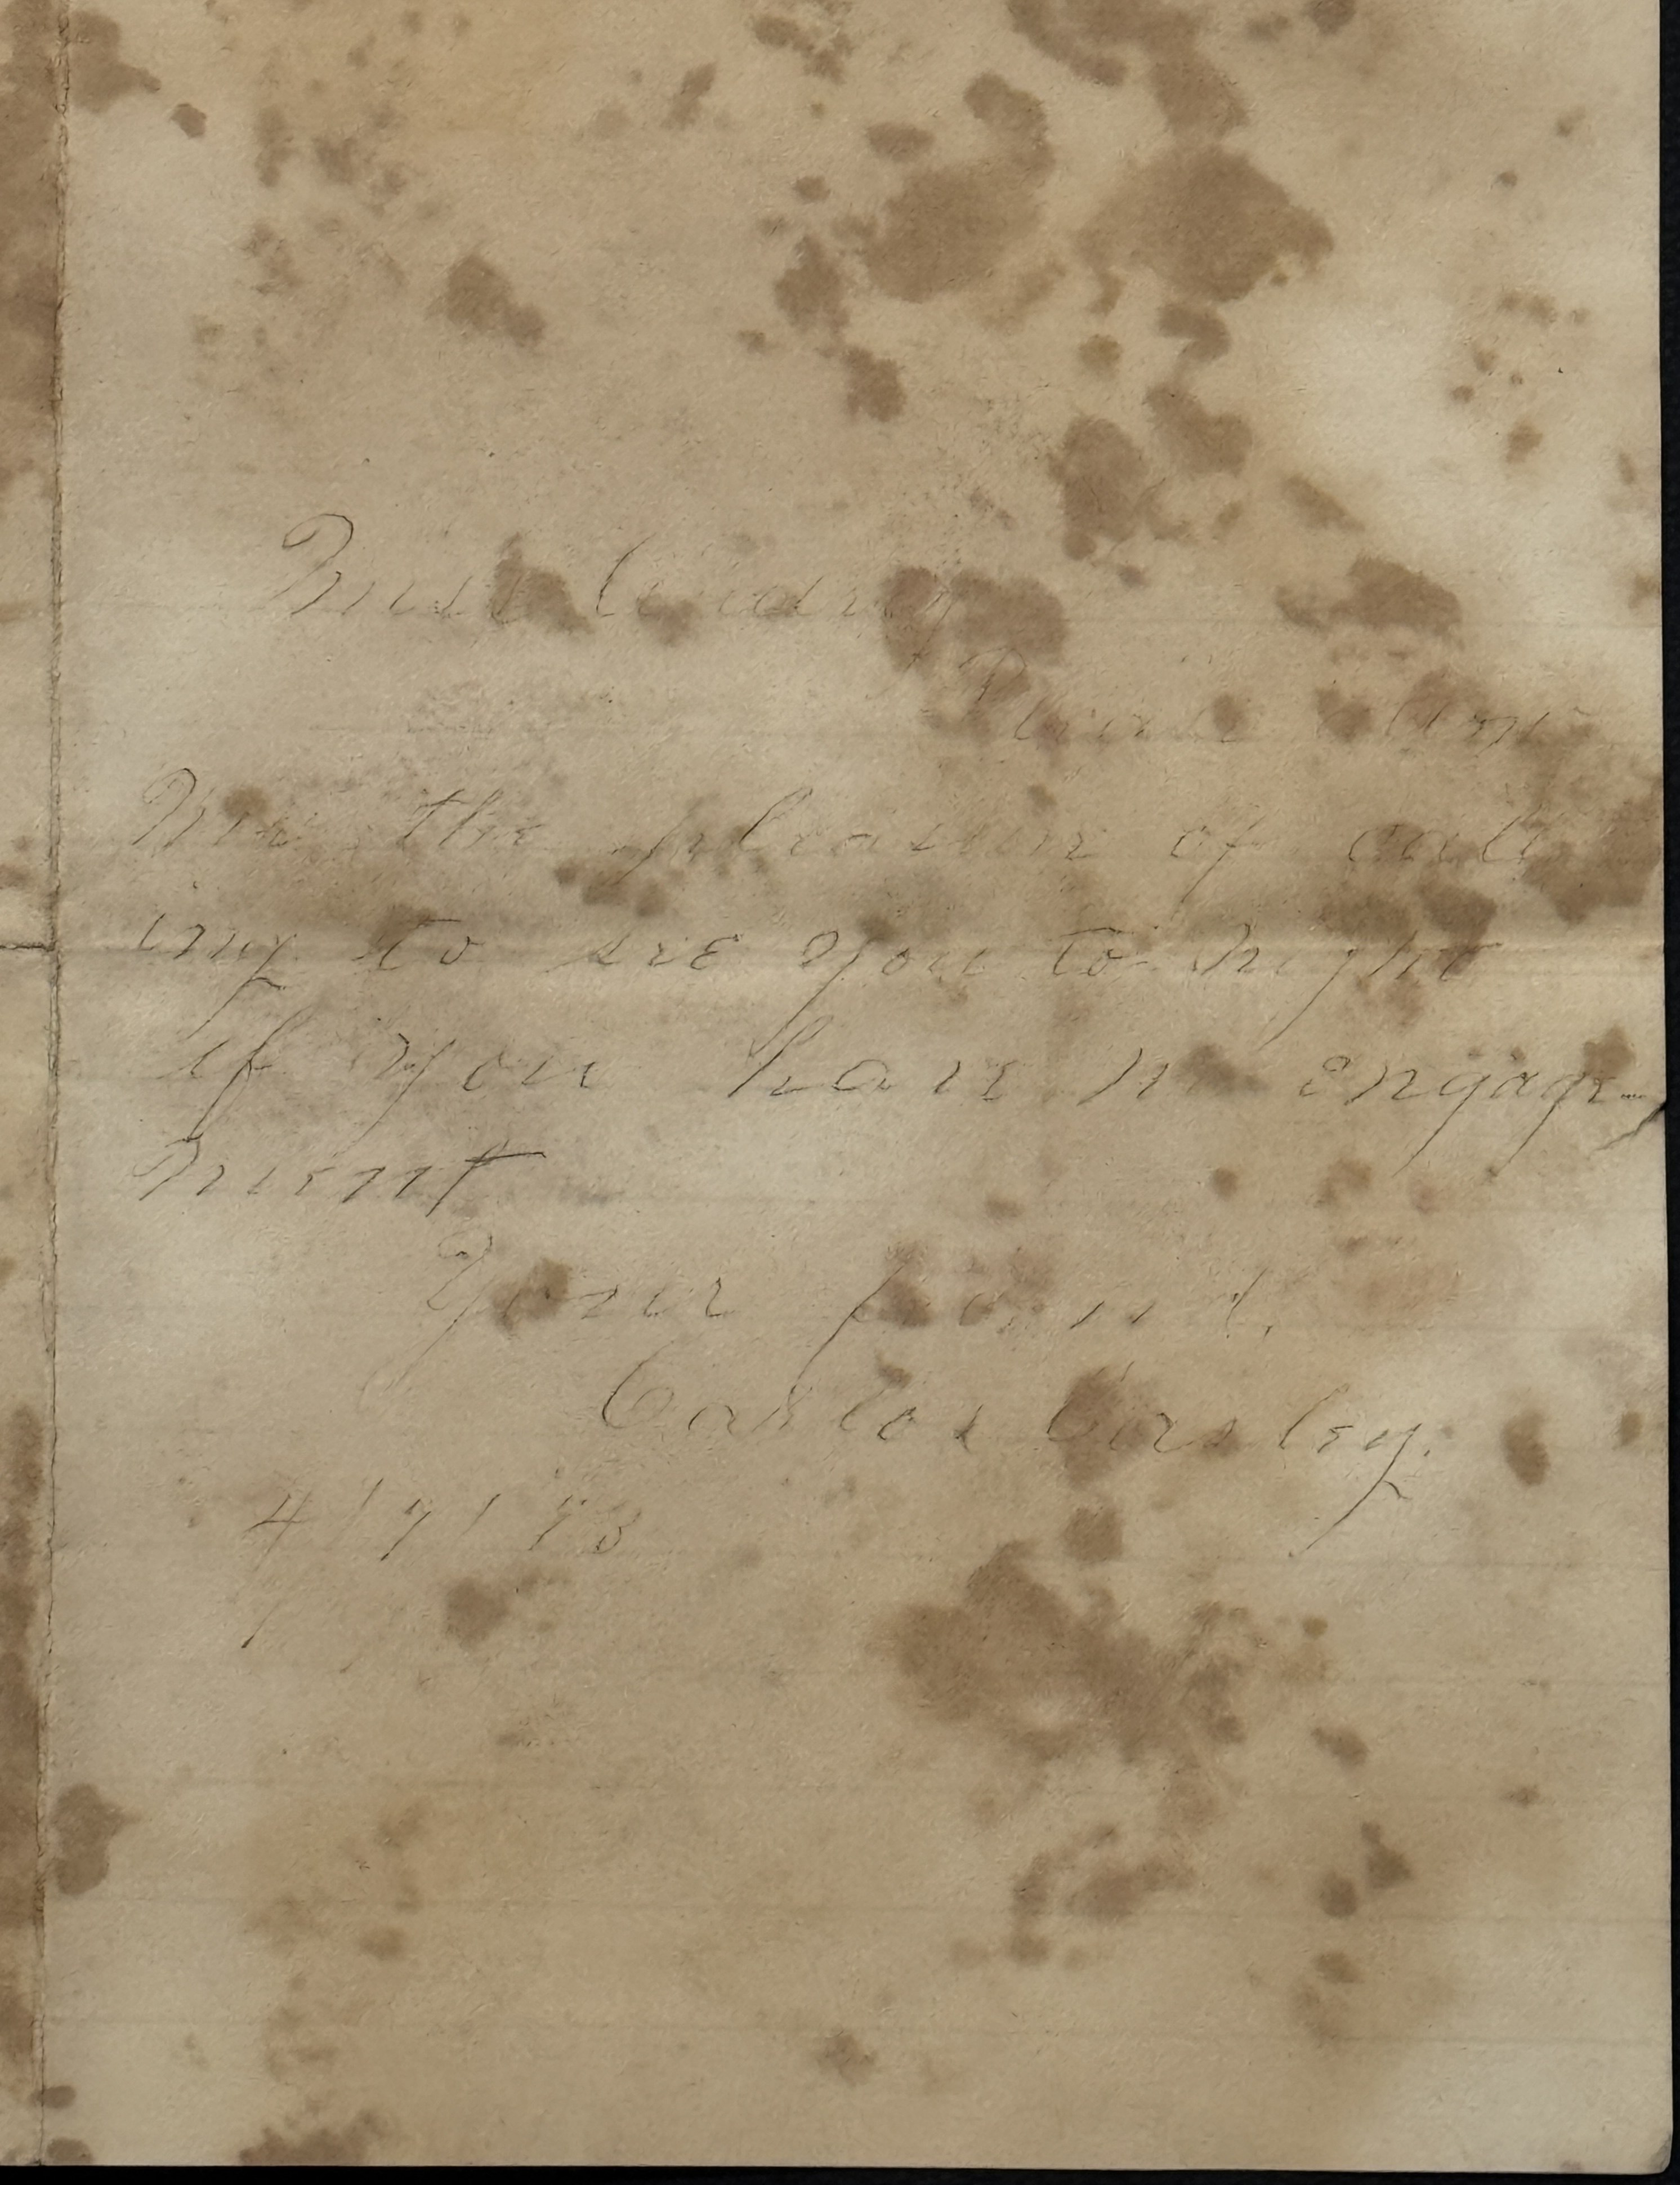 Miss
Please allow
Me the pleasure of call
ing to see you to night
if you have no engage-
ment
Your friend,
Carlos Easley.